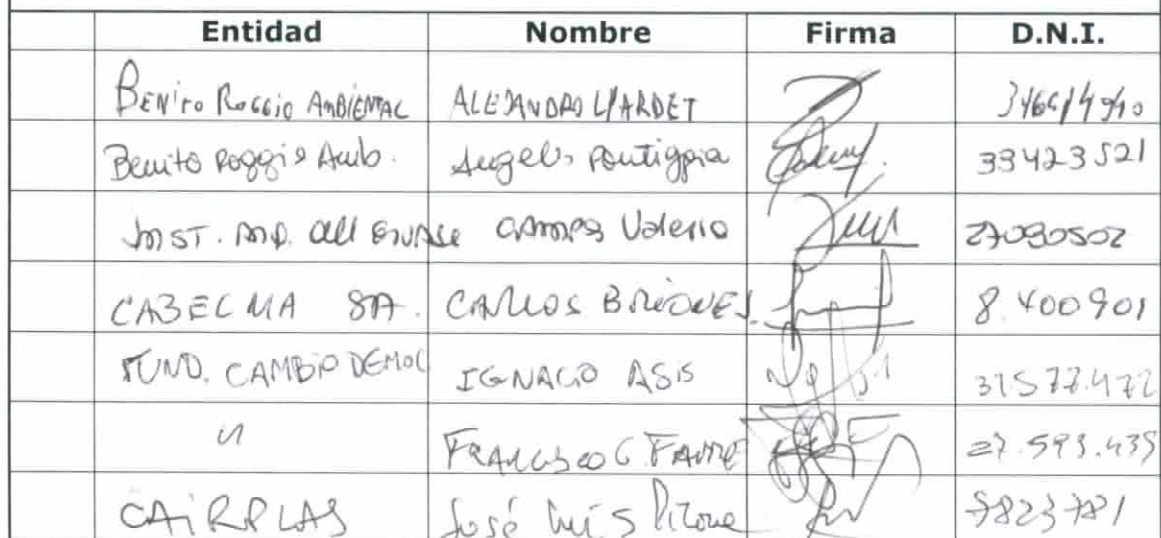 Entidad Nombre Firma D.N.I.
Benito Roggio Ambiental ALEJANDRO LIARDET
Benito Roggio Amb. Angeles Pontiggia 33423521
INST. Arg. del Envase Campos Valeria 27090502
CABECMA SA. CARLOS BRIONES 8.400901
FUND. CAMBIO DEMOC IGNACIO ASIS 31577.472
" FRANCISCO G FAVRE 27.593.435
CAIRPLAS José Luis Picone 7823781